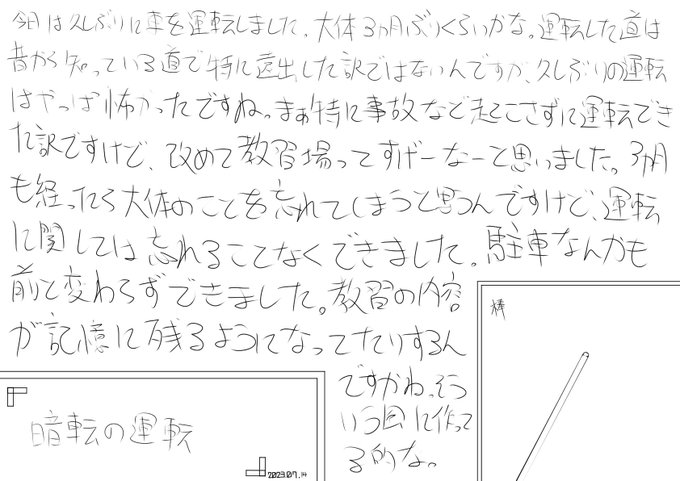 今日は久しぶりに車を運転しました。大体3ヵ月ぶりくらいかな。運転した道は
昔から知っている道で特に遠出した訳ではないんですが、久しぶりの運転
はやっぱ怖かったですね。まぁ特に事故など起こさずに運転でき
た訳ですけど、改めて教習場ってすげーなーと思いました。3ヵ月
も経ったら大体のことを忘れてしまうと思うんですけど、運転
に関しては忘れることなくできました。駐車なんかも
前と変わらずできました。教習の内容
が記憶に残るようになってたりするん
ですかね。そう
いう風に作って
る的な。
「暗転の運転」
2023.07.14
棒